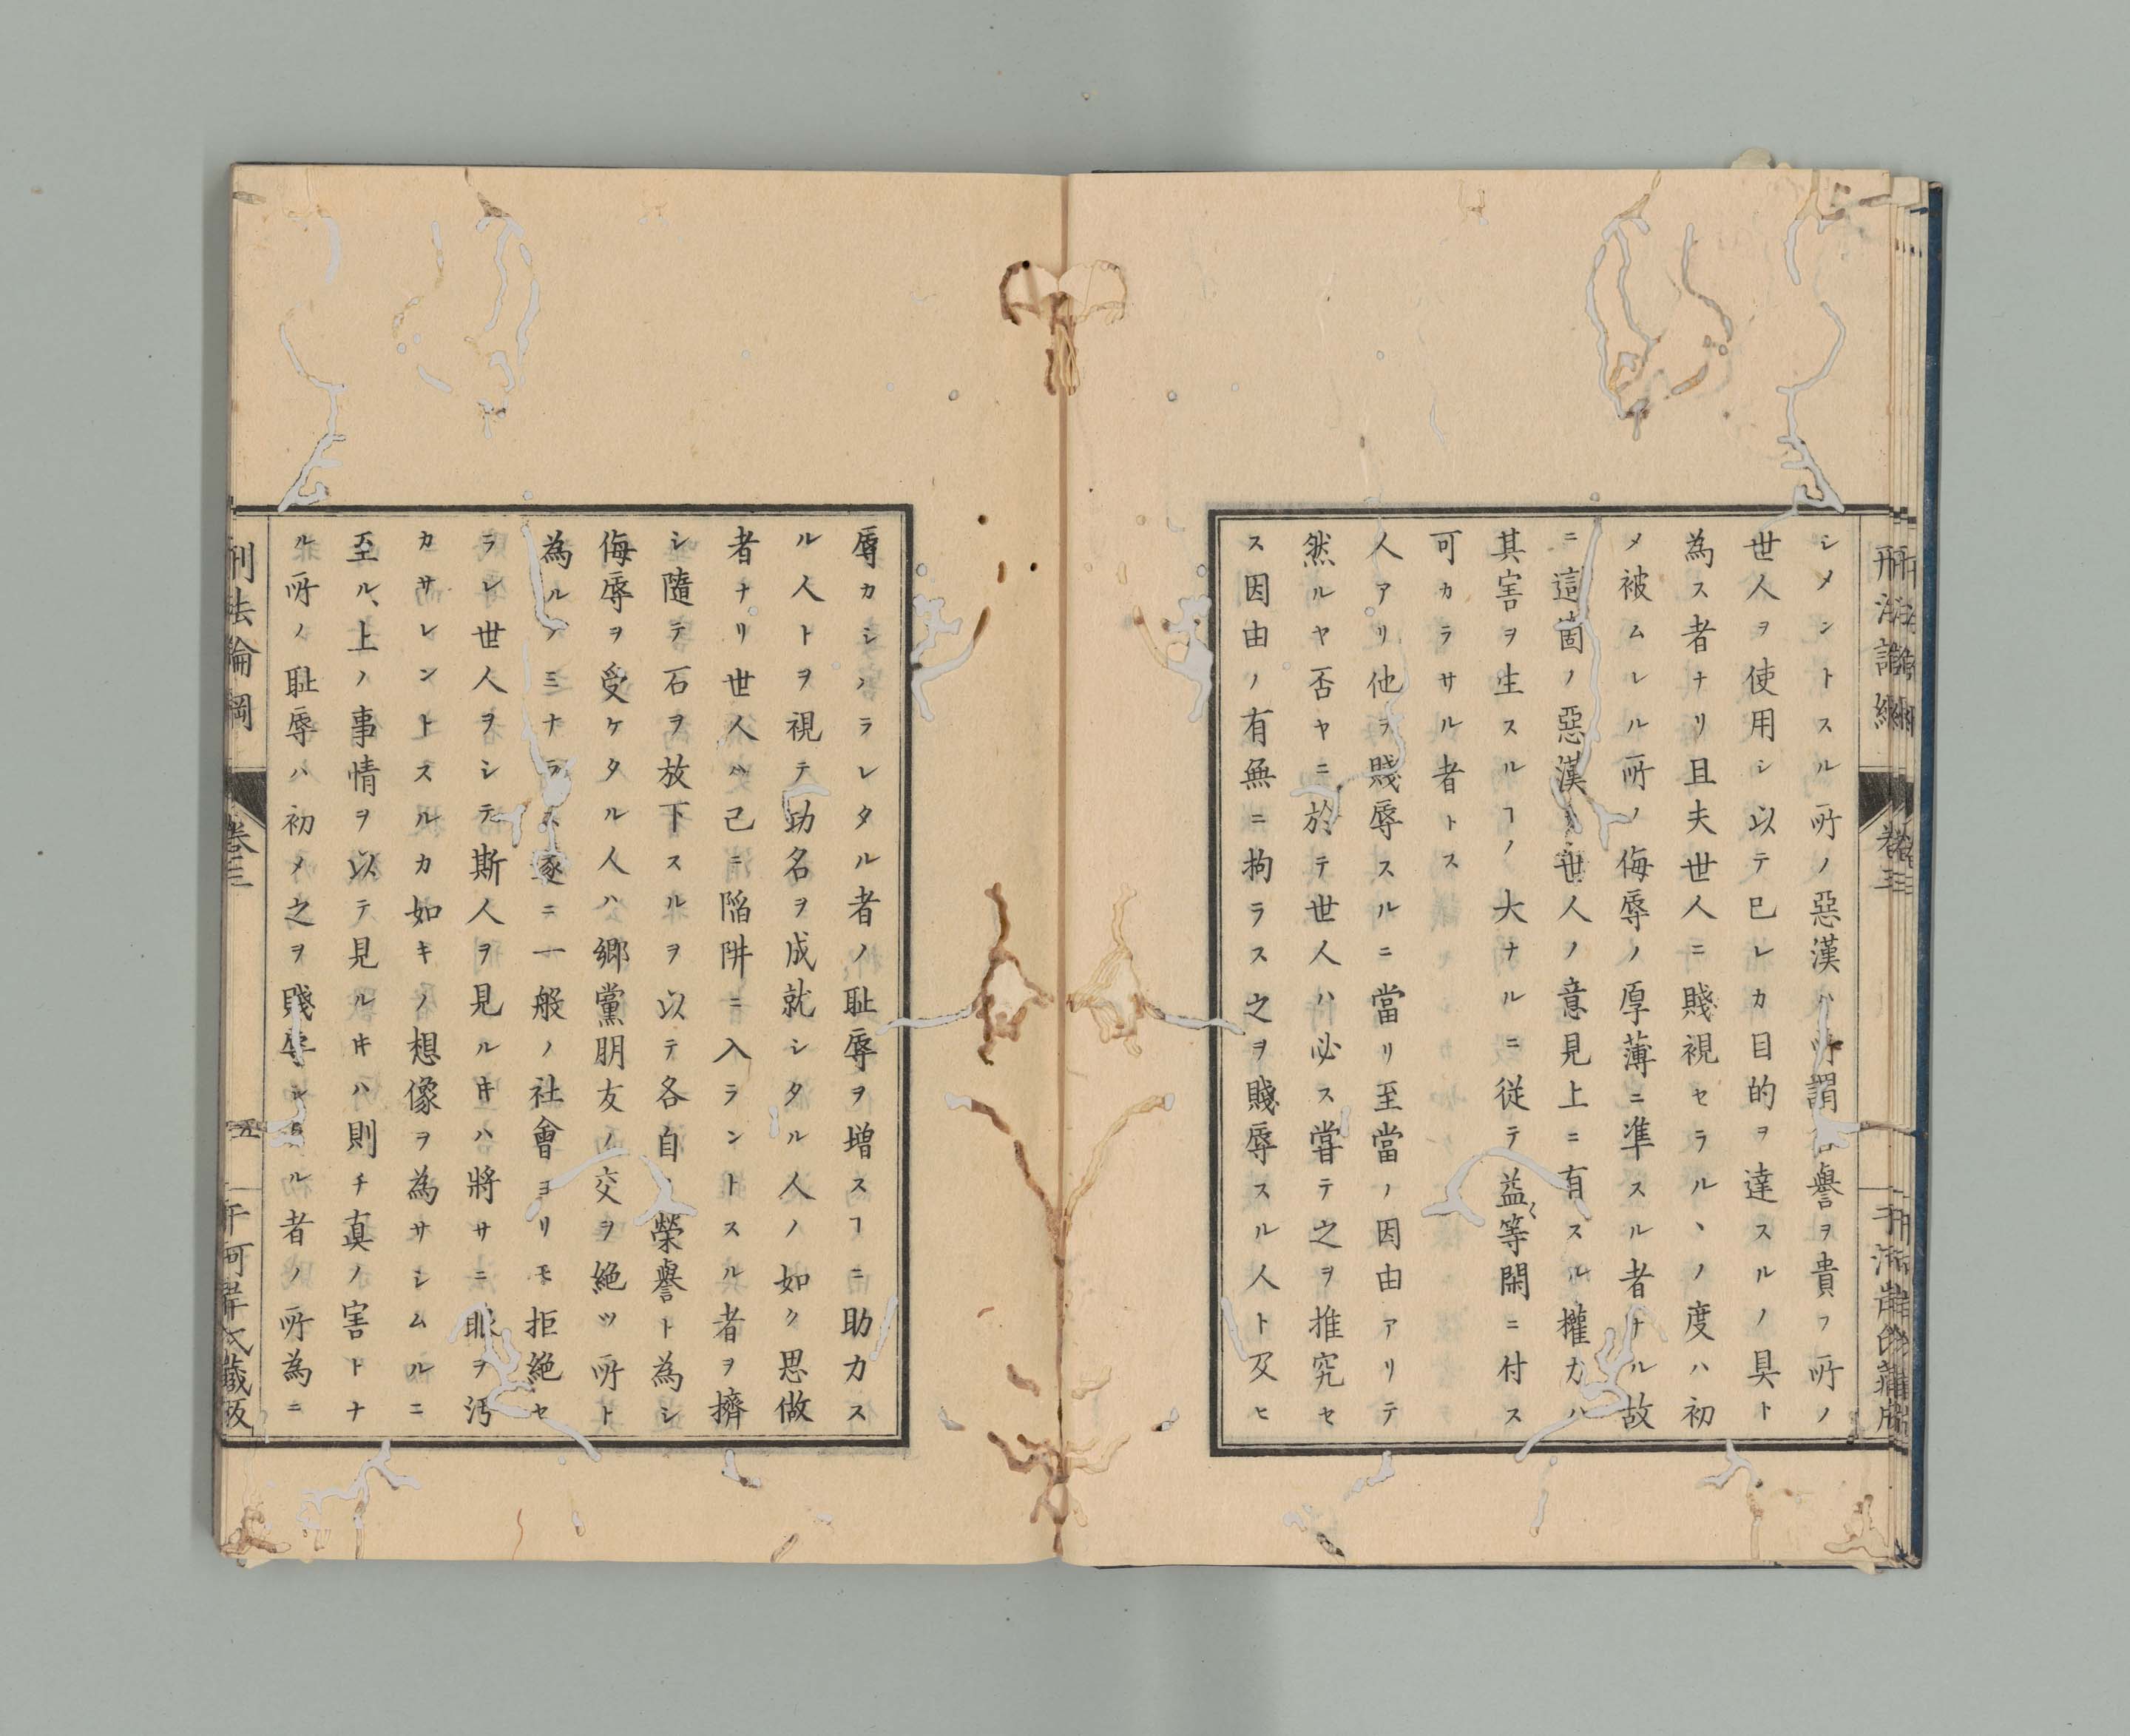 シメントスル所ノ惡漢ハ所謂名譽ヲ貴フ所ノ
世人ヲ使用シ以テ已レカ目的ヲ達スルノ具ト
為ス者ナリ且夫世人ニ賤視セラルヽノ度ハ初
メ被ムレル所ノ侮辱ノ厚薄ニ準スル者ナル故
ニ這箇ノ惡漢ハ世人ノ意見上ニ有スル權力ハ
其害ヲ生スルヿノ大ナルニ従テ益〻等閑ニ付ス
可カラサル者トス
人アリ他ヲ賤辱スルニ當リ至當ノ因由アリテ
然ルヤ否ヤニ於テ世人ハ必ス甞テ之ヲ推究セ
ス因由ノ有無ニ拘ラス之ヲ賤辱スル人ト及ヒ
辱カシメラレタル者ノ耻辱ヲ増スヿニ助カス
ル人トヲ視テ功名ヲ成就シタル人ノ如ク思做
者ナリ世人ハ己ニ陥阱ニ入ラントスル者ヲ擠
シ隨テ石ヲ放下スルヲ以テ各自ノ榮譽ト為シ
侮辱ヲ受ケタル人ハ鄉黨朋友ノ交ヲ絶ツ所ト
為ルノミナラス遂ニ一般ノ社會ヨリモ拒絶セ
ラレ世人ヲシテ斯人ヲ見ルキハ將サニ眼ヲ汚
カサレントスルカ如キノ想像ヲ為サシムルニ
至ル、上ノ事情ヲ以テ見ルキハ則チ真ノ害トナ
ル所ノ耻辱ハ初メ之ヲ賤辱シタル者ノ所為ニ
刑法論綱
卷三
五